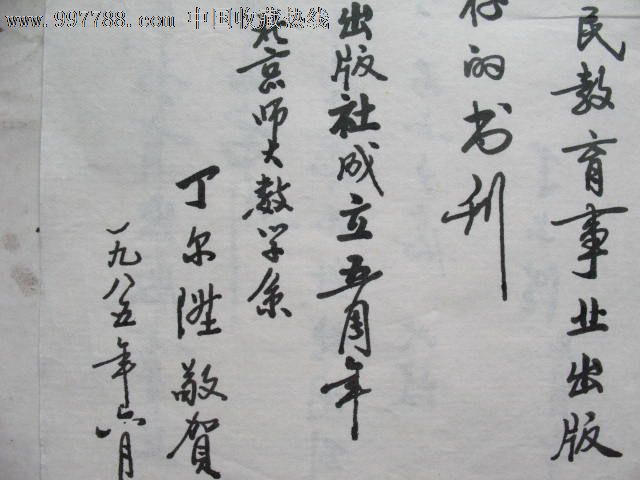 www.997788.com 中国收藏热线
民教育事业出版
的书刊
出版社成立五周年
北京师大数学系
丁尔陞敬贺
一九八五年六月